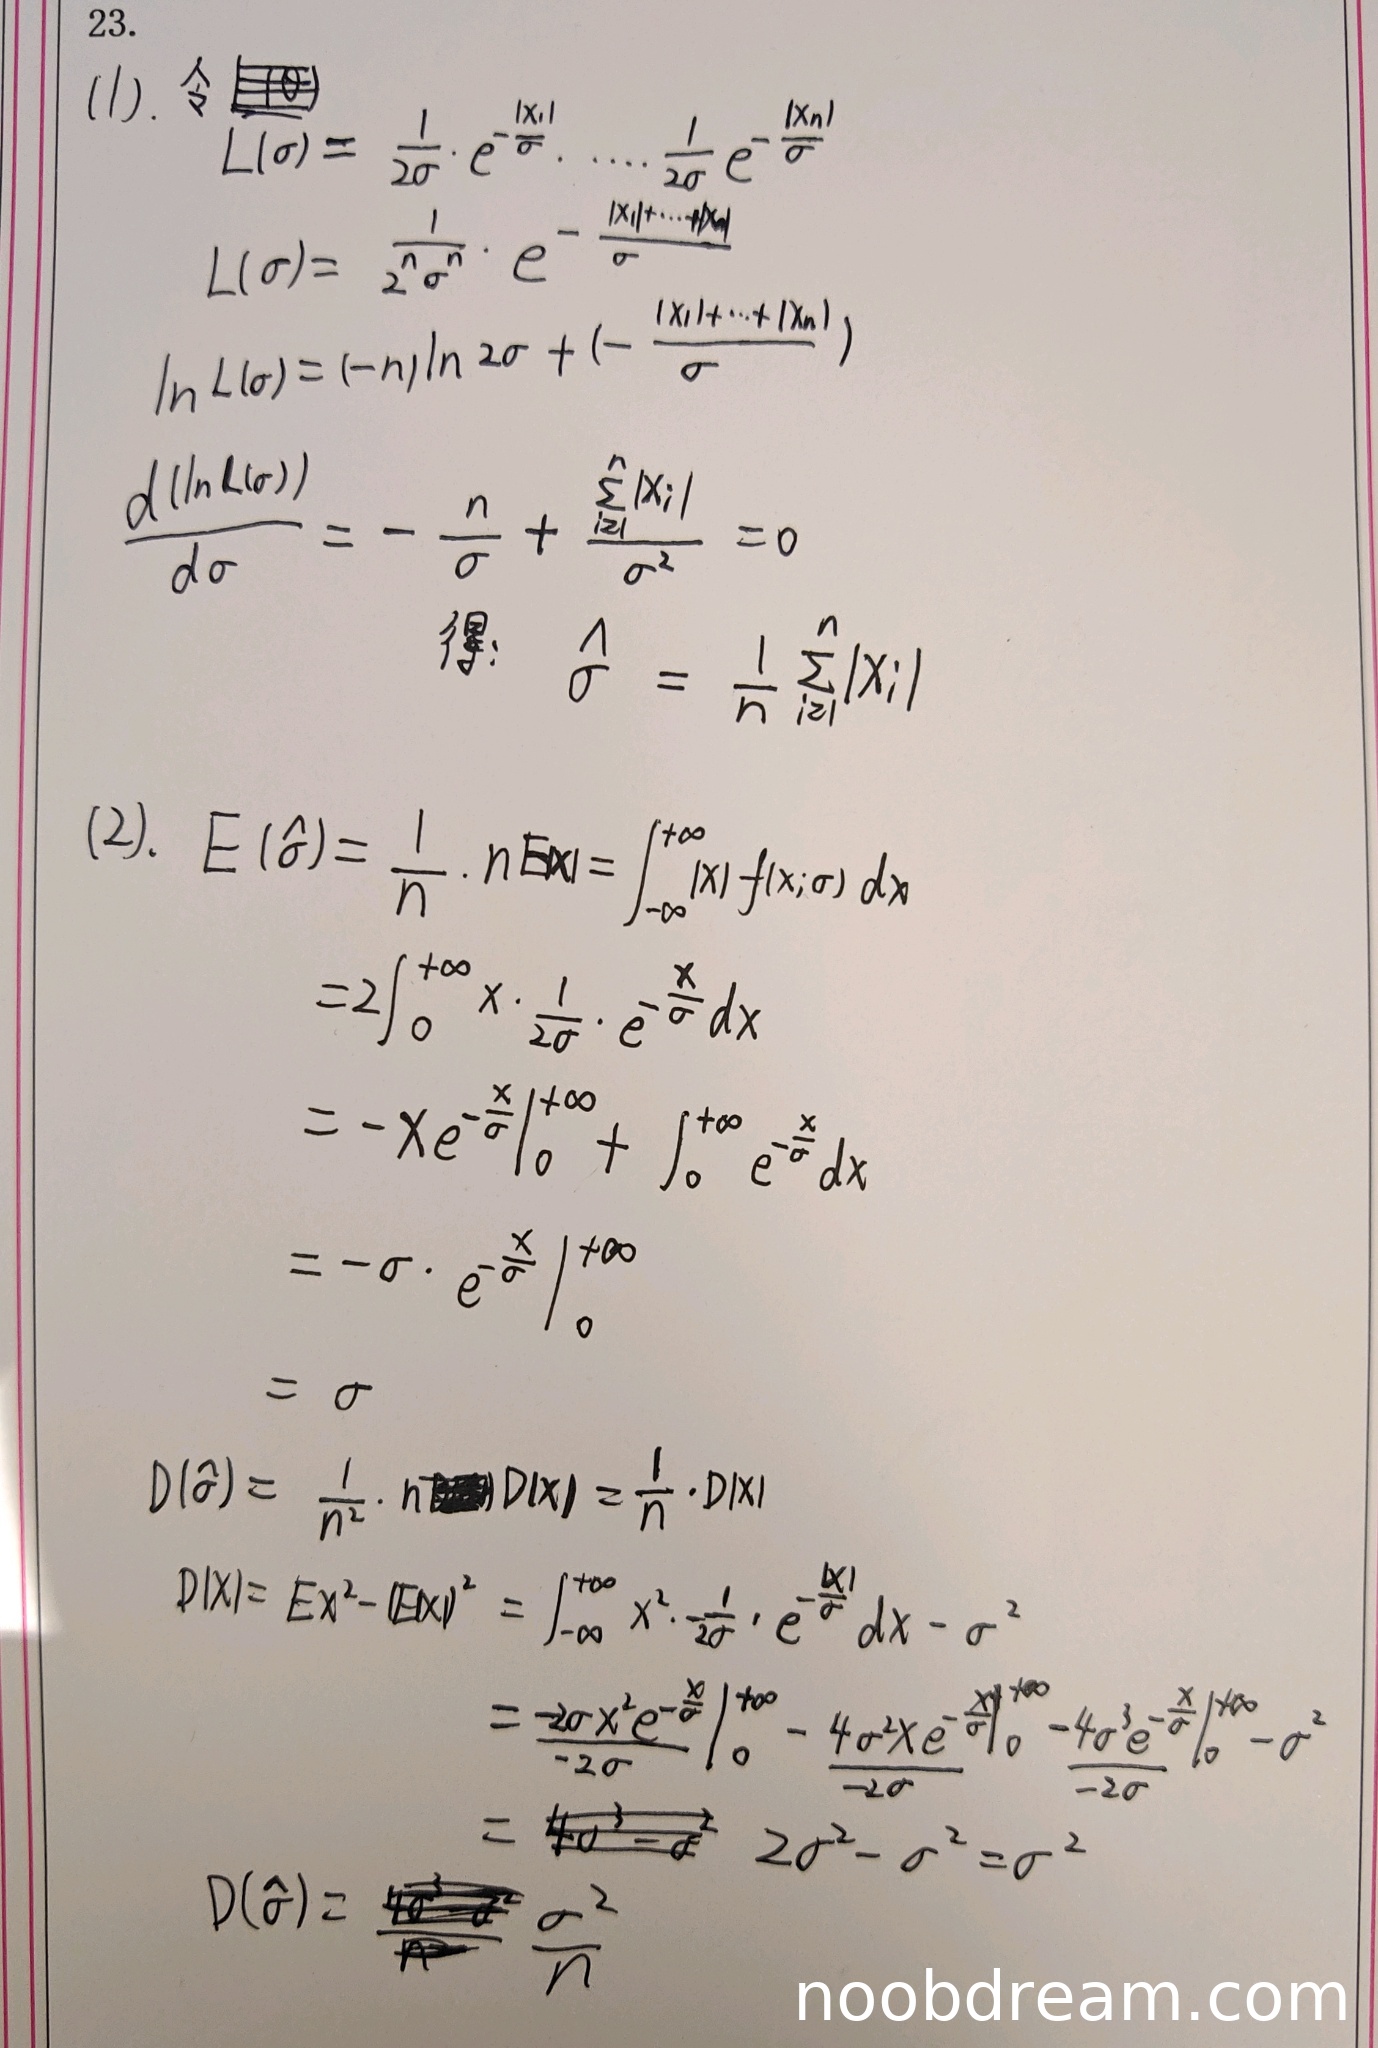 23.
(1). 令
L(σ) = 1/(2σ) · e^(-|X₁|/σ) · ···· 1/(2σ) e^(-|Xn|/σ)
L(σ) = 1/(2^n σ^n) · e^(-(|X₁|+···+|Xn|)/σ)
ln L(σ) = (-n) ln 2σ + (- (|X₁|+···+|Xn|)/σ)
d(ln L(σ))/dσ = - n/σ + (Σ_{i=1}^{n} |Xi|)/σ² = 0
得: σ̂ = 1/n Σ_{i=1}^{n} |Xi|
(2). E(σ̂) = 1/n · n E|X| = ∫_{-∞}^{+∞} |X| f(x;σ) dx
= 2∫_0^{+∞} x · 1/(2σ) · e^(-x/σ) dx
= -xe^(-x/σ) |_0^{+∞} + ∫_0^{+∞} e^(-x/σ) dx
= -σ · e^(-x/σ) |_0^{+∞}
= σ
D(σ̂) = 1/n² · n D|X| = 1/n · D|X|
D|X| = EX² - (E|X|)² = ∫_{-∞}^{+∞} x² · 1/(2σ) · e^(-|x|/σ) dx - σ²
= (-2σx²e^(-x/σ))/(-2σ) |_0^{+∞} - (4σ²xe^(-x/σ))/(-2σ) |_0^{+∞} - (4σ³e^(-x/σ))/(-2σ) |_0^{+∞} - σ²
= 2σ² - σ² = σ²
D(σ̂) = σ²/n
noobdream.com